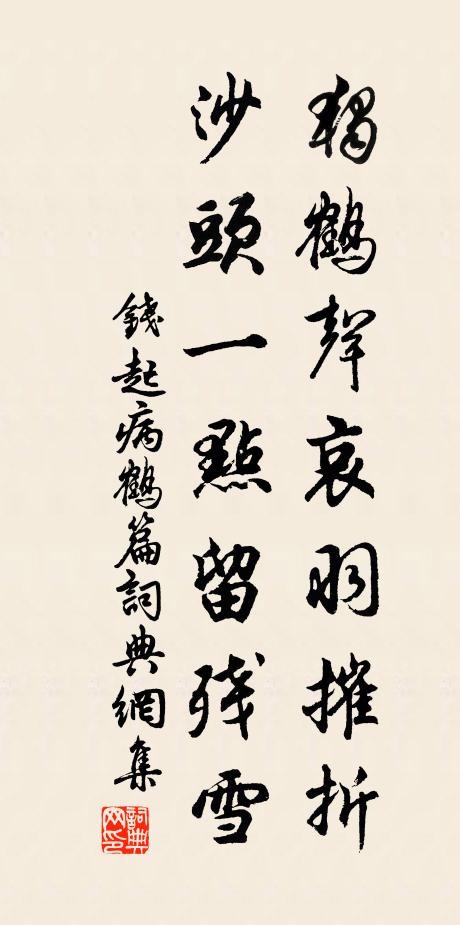 獨鶴聲哀羽摧折
沙頭一點留残雪
錢起病鶴篇詞典網集
詞典網印